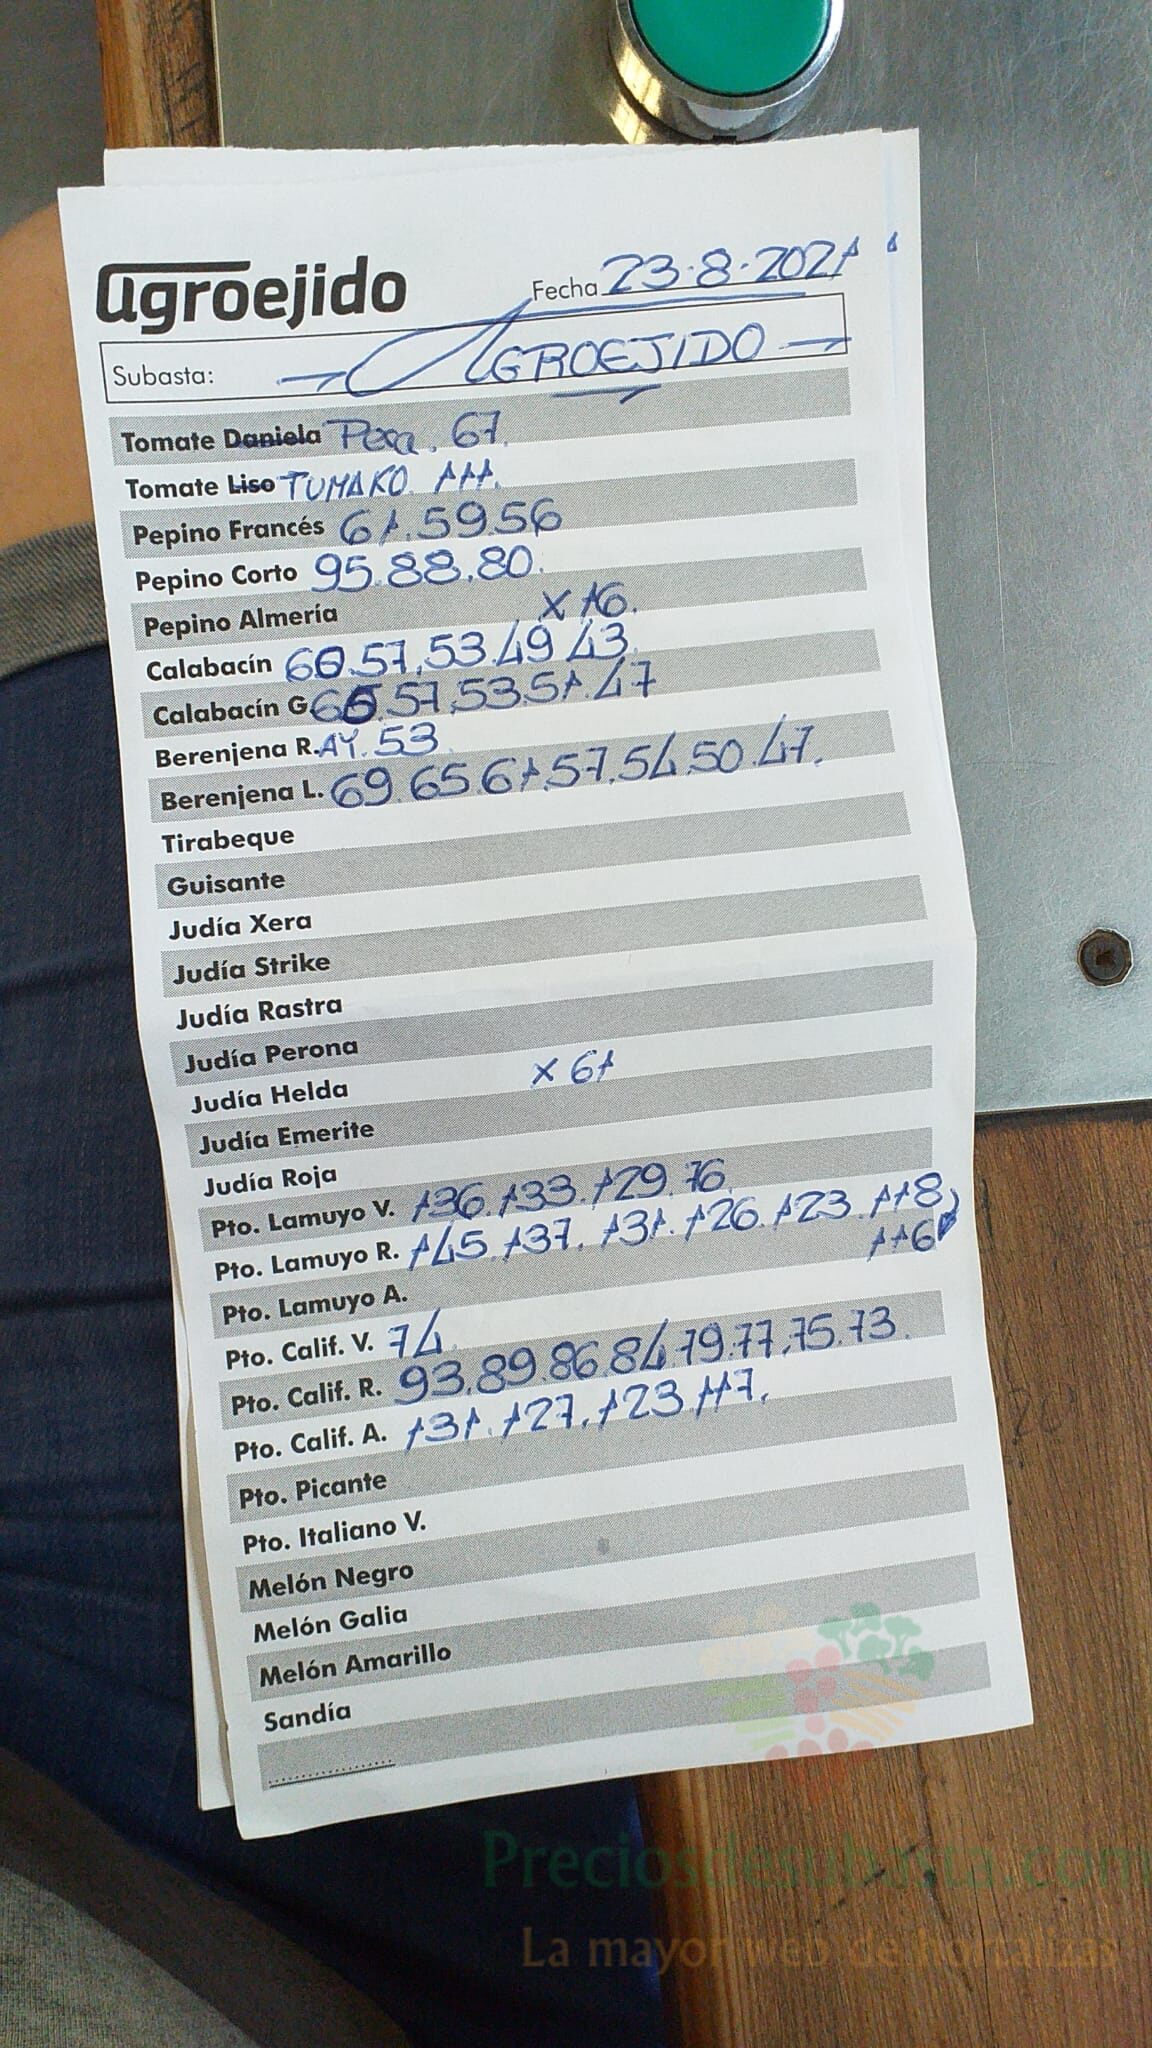 agroejido
Fecha 23.8.2021
Subasta: → AGROEJIDO →
Tomate Daniela Pera. 67.
Tomate Liso TUMAKO. 111.
Pepino Francés 61.59.56
Pepino Corto 95.88.80.
Pepino Almería
x 16.
Calabacín 60.57.53.49 43.
Calabacín G. 57.53.51.47
Berenjena R. AY. 53.
Berenjena L. 69.65 61.57.54.50.47.
Tirabeque
Guisante
Judía Xera
Judía Strike
Judía Rastra
Judía Perona
Judía Helda x 61
Judía Emerite
Judía Roja
Pto. Lamuyo V. 136.133.129.76.
Pto. Lamuyo R. 145.137.131.126.123.118,
116
Pto. Lamuyo A.
Pto. Calif. V. 74.
Pto. Calif. R. 93.89.86.84.79.77.75.73.
Pto. Calif. A. 131.127.123.117.
Pto. Picante
Pto. Italiano V.
Melón Negro
Melón Galia
Melón Amarillo
Sandía
Preciosdesubasta.com
La mayor web de hortalizas